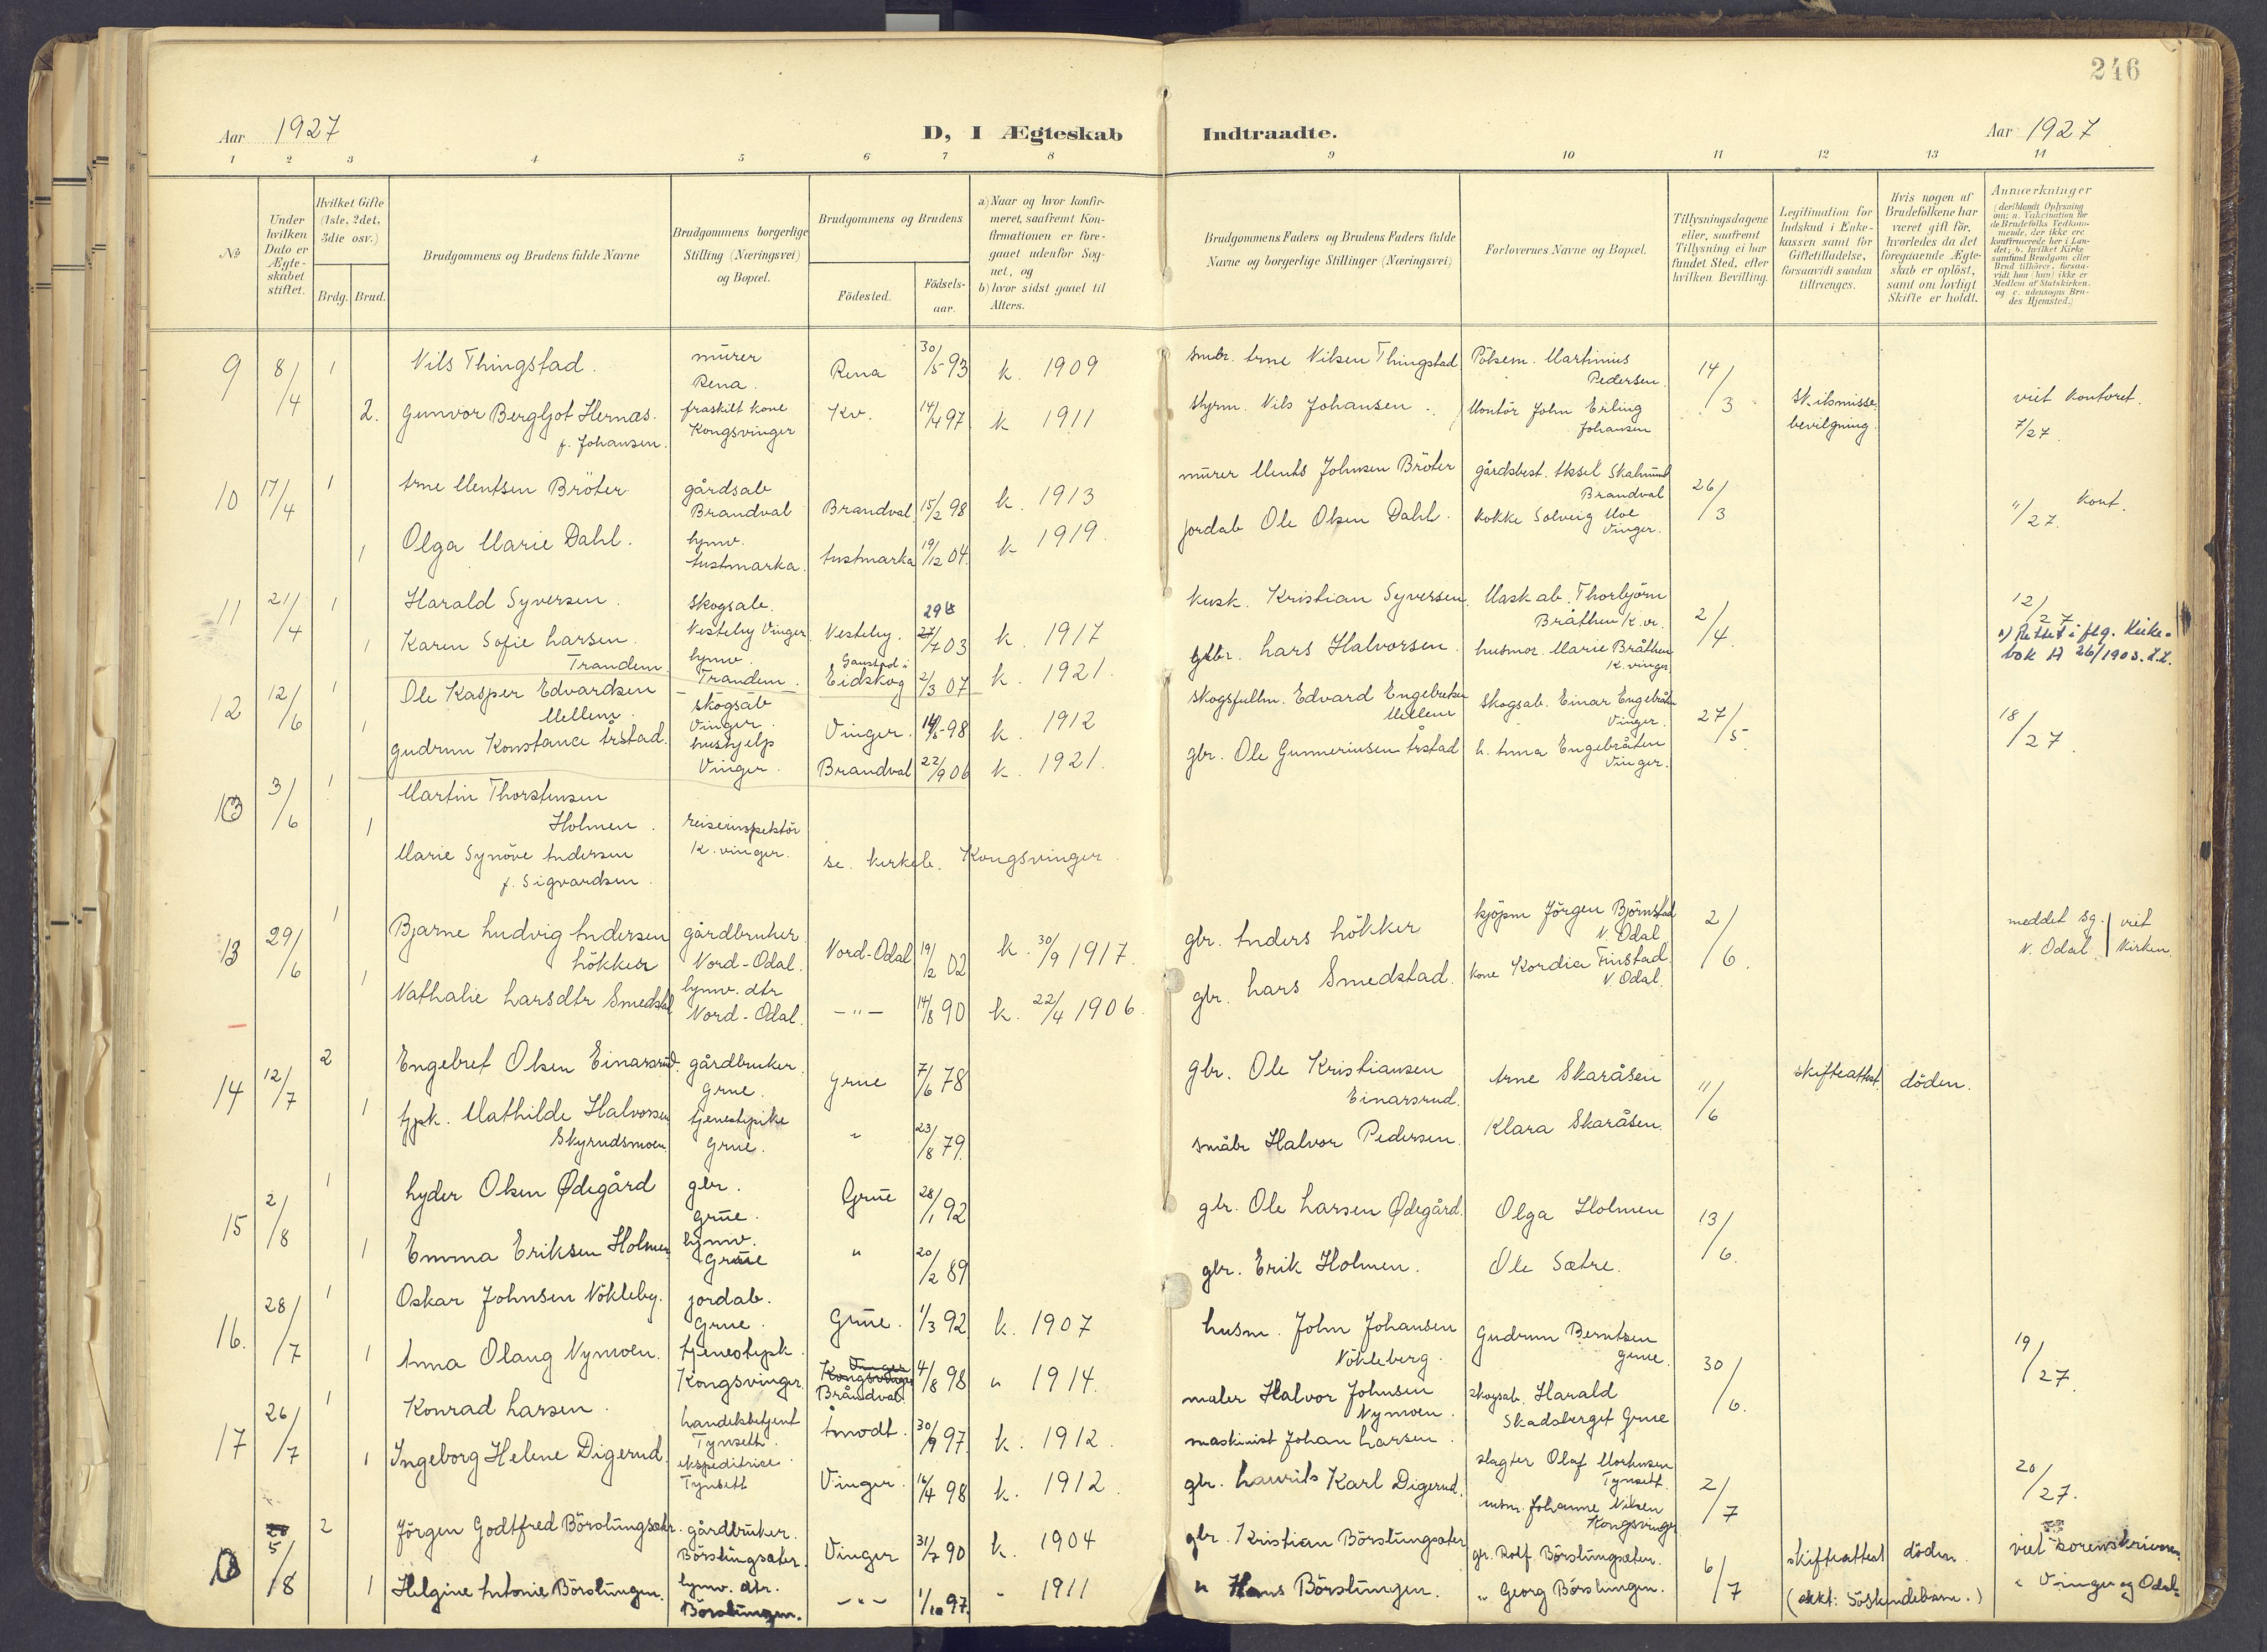 246
Aar 1927
D, I Ægteskab Indtraadte.
Aar 1927
1 2 3 4 5 6 7 8 9 10 11 12 13 14
No
Under hvilken Dato er Ægteskabet stiftet.
Hvilket Gifte (1ste, 2det, 3die osv.)
Brdg. Brud.
Brudgommens og Brudens fulde Navne
Brudgommens borgerlige Stilling (Næringsvei) og Bopæl.
Brudgommens og Brudens
Födested.
Födsels-aar.
a) Naar og hvor konfir-
meret, saafremt Kon-
firmationen er fore-
gaaet udenfor Sog-
net, og
b) hvor sidst gaaet til
Alters.
Brudgommens Faders og Brudens Faders fulde
Navne og borgerlige Stillinger (Næringsvei)
Forlovernes Navne og Bopæl.
Tillysningsdagene
eller, saafremt
Tillysning ei har
fundet Sted, efter
hvilken Bevilling.
Legitimation for
Indskud i Enke-
kassen samt for
Giftetilladelse,
forsaavidt saadan
tiltrænges.
Hvis nogen af
Brudefolkene har
været gift för,
hvorledes da det
foregaaende Ægte-
skab er oplöst,
samt om lovligt
Skifte er holdt.
Anmærkninger
(deriblandt Oplysning
om: a. Vakcination for
de Brudefolks Vedkom-
mende, der ikke ere
konfirmerede her i Lan-
det; b. hvilket Kirke-
samfund Brudgom eller
Brud tilhörer, forsaa-
vidt han (hun) ikke er
Medlem af Statskirken.
og c. udensogns Bru-
des Hjemsted.)
9 8/4 1 Nils Thingstad. murer Rena. Rena 30/5 93 k. 1909 smbr. Arne Nilsen Thingstad Pölsem. Martinius Pedersen. 14/3
2. Gunvor Bergljot Hernæs f. Johansen. fraskilt kone Kongsvinger Kv. 14/4 97 k 1911 styrm. Nils Johansen Montör John Erling Johansen Skilsmisse bevilgning. viet kontoret. 7/27.
10 17/4 1 Arne Mentsen Bröter gårdsab Brandval Brandval 15/2 98 k. 1913 murer Ments Johnsen Bröter gårdsbest. Aksel Skalmund Brandval 26/3
1 Olga Marie Dahl. hjmv. Austmarka. Austmarka 19/12 04. k 1919. jordab Ole Olsen Dahl. kokke Solveig Moe Vinger. 11/27. kont.
11 21/4 1 Harald Syversen. skogsab. Vesteby Vinger. Vesteby. 27/7 03 k. 1917 kusk. Kristian Syversen. Mask ab. Thorbjörn Bråthen K.vr. 2/4. 12/27
1 Karen Sofie Larsen Trandem. hjmv. Trandem. Gaustad i Eidskog 2/3 07 k. 1921. gbr. Lars Halvorsen. husmor Marie Bråthen K.vinger a) Rettet i flg. Kirke-
bok A 26/1903.
12 12/6 1 Ole Kasper Edvardsen Mellem. skogsab Vinger. Vinger. 98 k. 1912 skogsfullm. Edvard Engebretsen Mellem skogsab. Einar Engebråten Vinger. 27/5.
1 Gudrun Konstance Årstad. hushjelp Vinger. Brandval 22/9 06 k. 1921. gbr. Ole Gunneriusen Årstad h. Anna Engebråten Vinger. 18/27.
13 3/6 1 Martin Thorstensen Holmen. reiseinspektör K.vinger.
1 Marie Synöve Andersen f. Sigvardsen. se. kirkeb. Kongsvinger.
13 29/6 1 Bjarne Ludvig Andersen Lökker gårdbruker Nord-Odal. Nord-Odal 19/2 02 k. 30/9 1917. gbr. Anders Lökker kjöpm Jörgen Björnstad N. Odal 2/6. meddet sg. N. Odal viet Kirken.
1 Nathalie Larsdtr Smedstad hjmv. dtr Nord-Odal. -"- 14/8 90 k. 22/4 1906. gbr. Lars Smedstad. kone Kordia Finstad N. Odal.
14 12/7 2 Engebret Olsen Einarsrud. gårdbruker. Grue. Grue 7/6 78 gbr. Ole Kristiansen Einarsrud. Arne Skaråsen 11/6 skifteattest. döden.
1 tjpk. Mathilde Halvorsen Skyrudsmoen. tjenestepike Grue. " 23/8 79. småbr Halvor Pedersen. Klara Skaråsen.
15 2/8 1 Lyder Olsen Ødegård gbr. Grue. Grue 28/1 92 gbr. Ole Larsen Ødegård. Olga Holmen 13/6.
1 Emma Eriksen Holmen. hjmv. Grue " 20/2 89 gbr. Erik Holmen. Ole Sætre.
16. 28/7 1 Oskar Johnsen Nökleby. jordab. Grue. Grue. 1/3 92 k. 1907 husm. John Johansen Nökleberg. Gudrun Berntsen Grue. 30/6. 19/27.
1 Anna Olaug Nymoen. tjenestepk. Kongsvinger. Brandval. 4/8 98 " 1914. maler Halvor Johnsen Nymoen. skogsab. Harald Skadsberget Grue
17 26/7 1 Konrad Larsen. handelsbetjent Tynsett. Åmodt. 30/9 97. k. 1912. maskinist Johan Larsen. slagter Olaf Tynsett. 2/7
1 Ingeborg Helene Digerud. ekspeditrice Tynsett Vinger. 16/4 98 k. 1912. gbr. Laurits Karl Digerud. Johanne Nilsen Kongsvinger 20/27.
5/8 2 Jörgen Godtfred Börslungsæter. gårdbruker. Börslungsæter. Vinger 31/7 90 k. 1904 gbr. Kristian Börslungsæter gbr. Rolf. Börslungsæter. 6/7 skifteattest döden. viet sorenskriveren
1 Helgine Antonie Börslungen. hjmv. dtr. Börslungen. -"- 1/10 97. " 1911 " Hans Börslungen. " Georg Börslungen. (akt: Söskendebarn.) i Vinger og Odal.